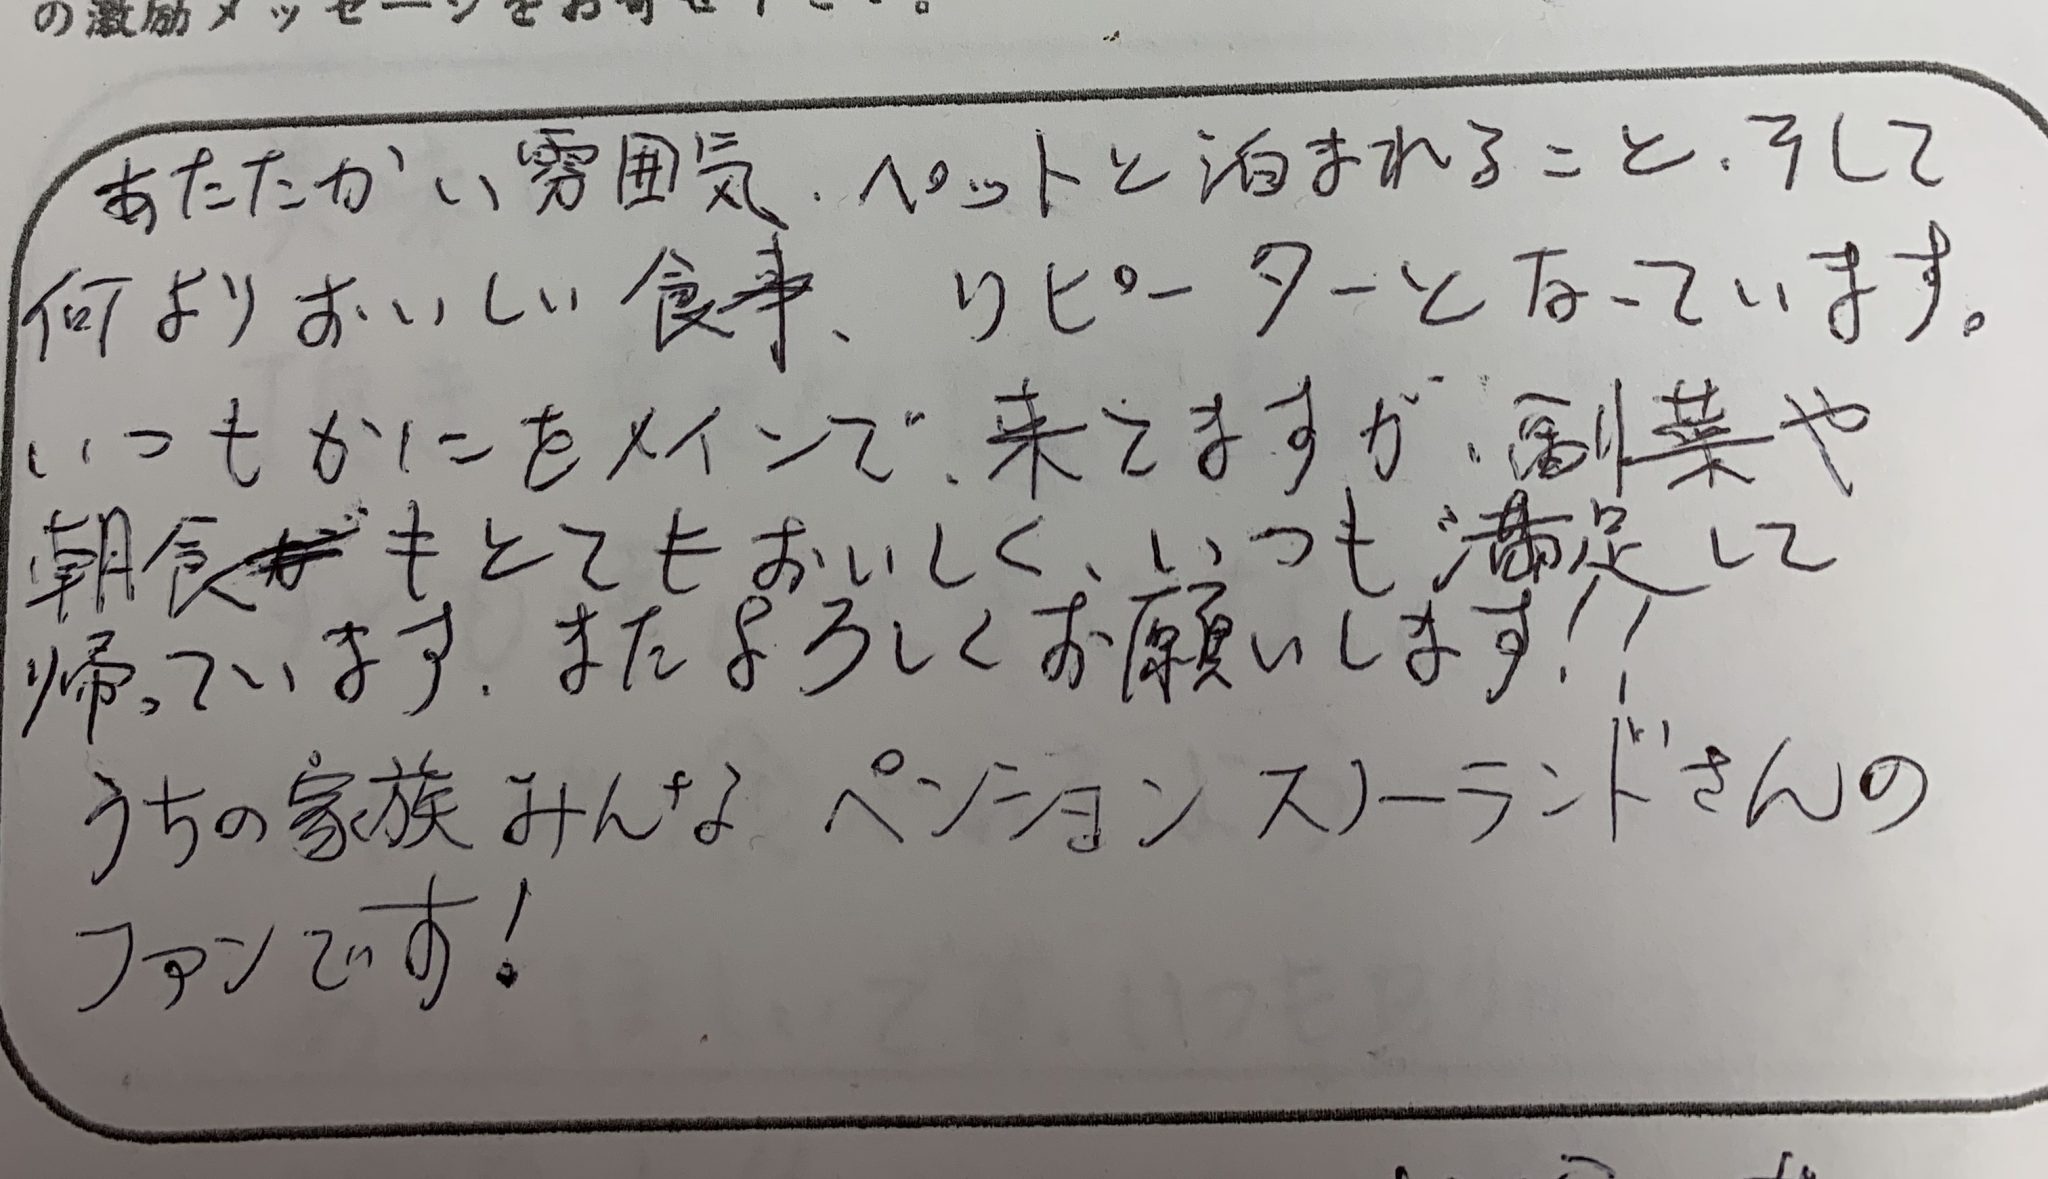 の激励メッセージをお寄せ下さい。
あたたかい雰囲気、ペットと泊まれること、そして
何よりおいしい食事、リピーターとなっています。
いつもかにをメインで、来てますが、副菜や
朝食もとてもおいしく、いつも満足して
帰っています。またよろしくお願いします!!
うちの家族みんなペンションスノーランドさんの
ファンです!